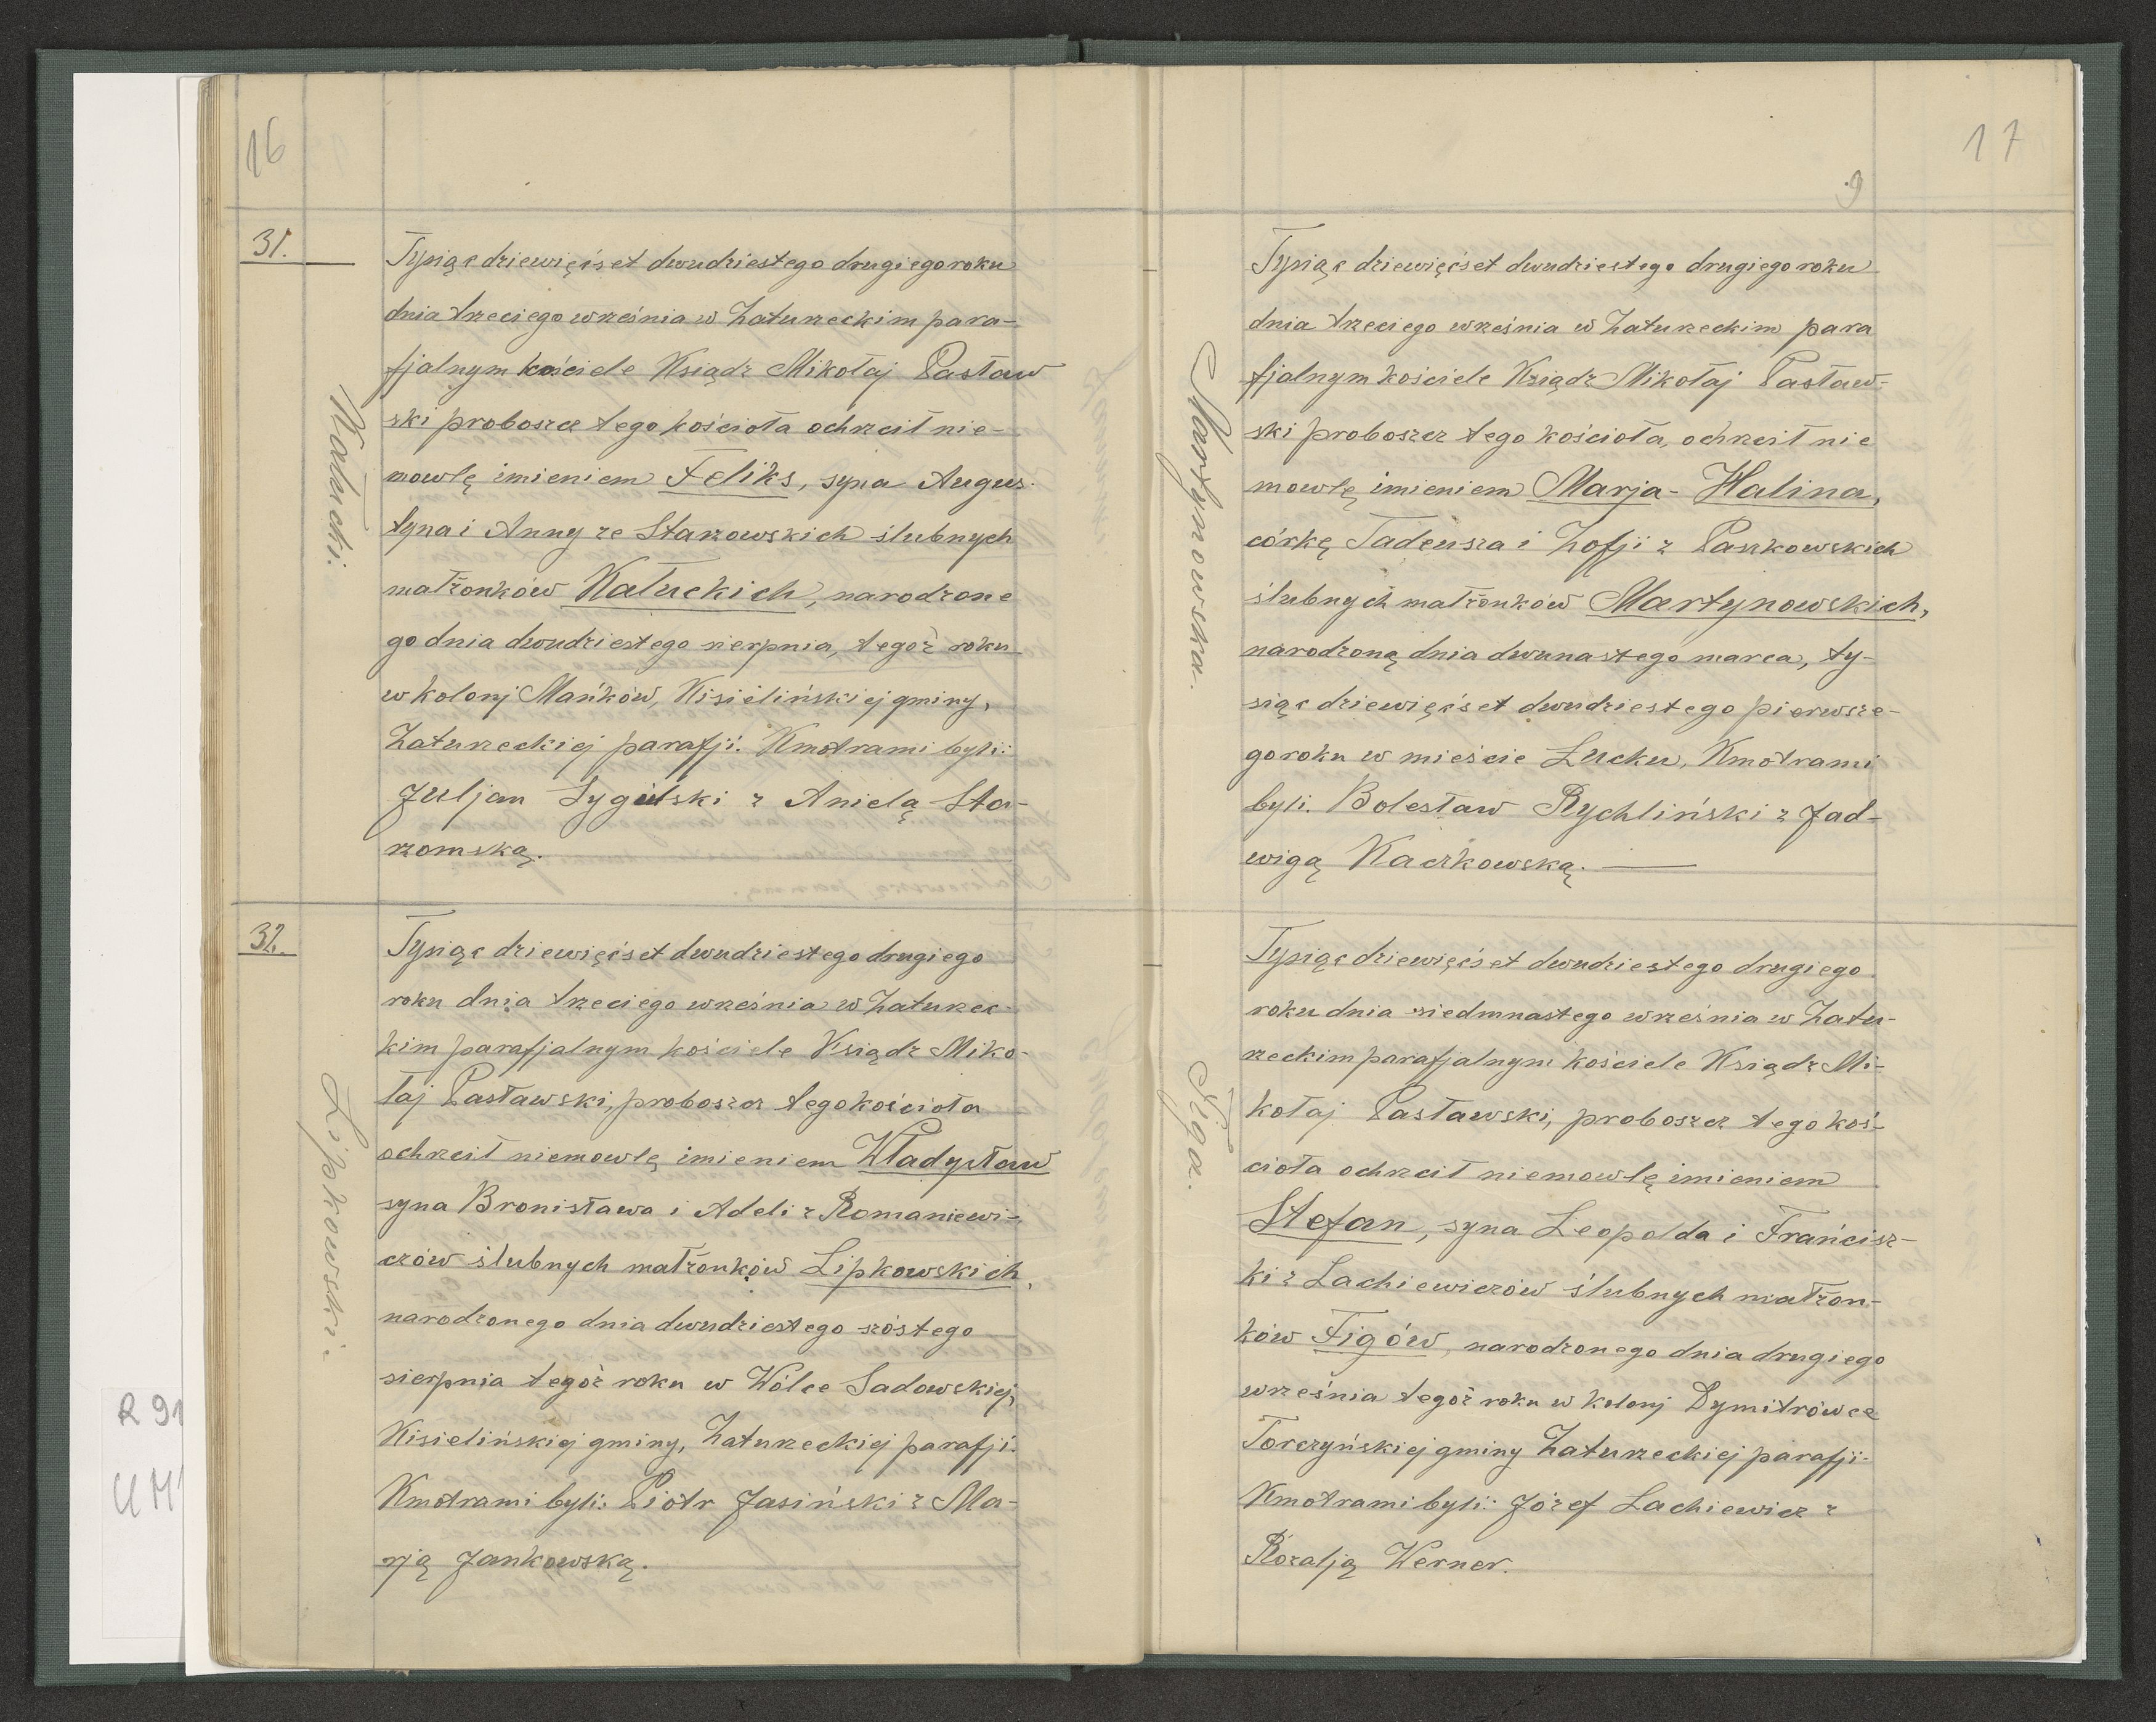 16
31.
Kałucki.
Tysiąc dziewięćset dwudziestego drugiego roku
dnia trzeciego września w Zaturzeckim para-
fjalnym kościele Ksiądz Mikołaj Pasław
ski proboszcz tego kościoła ochrzcił nie-
mowlę imieniem Feliks, syna Augus-
tyna i Anny ze Starowskich ślubnych
małżonków Kałuckich, narodzone
go dnia dwudziestego sierpnia, tegoż roku
w kolonj Mańków, Kisielińskiej gminy,
Zaturzeckiej parafji. Kmotrami byli:
Juljan Sygulski z Anielą Sta-
romską.
32.
Lipkowski.
Tysiąc dziewięćset dwudziestego drugiego
roku dnia trzeciego września w Zaturzec-
kim parafjalnym kościele Ksiądz Miko-
łaj Pasławski, proboszcz tego kościoła
ochrzcił niemowlę imieniem Władysław
syna Bronisława i Adeli z Romaniewi-
czów ślubnych małżonków Lipkowskich,
narodzonego dnia dwudziestego szóstego
sierpnia tegoż roku w Wólce Sadowskiej,
Kisielińskiej gminy, Zaturzeckiej parafji.
Kmotrami byli: Piotr Jasiński z Ma-
rją Jankowską.
R 91
UM
17
9
Martynowska.
Tysiąc dziewięćset dwudziestego drugiego roku
dnia trzeciego września w Zaturzeckim para
fjalnym kościele Ksiądz Mikołaj Pasław-
ski proboszcz tego kościoła, ochrzcił nie
mowlę imieniem Marja-Halina,
córkę Tadeusza i Zofji z Paszkowskich
ślubnych małżonków Martynowskich,
narodzoną dnia dwunastego marca, ty-
siąc dziewięćset dwudziestego pierwsze-
go roku w mieście Łucku, Kmotrami
byli. Bolesław Rychliński z Jad-
wigą Kaczkowską.
Figa.
Tysiąc dziewięćset dwudziestego drugiego
roku dnia siedmnastego września w Zatu-
rzeckim parafjalnym kościele Ksiądz Mi-
kołaj Pasławski, proboszcz tego koś-
cioła ochrzcił niemowlę imieniem
Stefan, syna Leopolda i Francisz-
ki z Lachiewiczów ślubnych małżon-
ków Figów, narodzonego dnia drugiego
września tegoż roku w kolonj Dymitrówce
Torczyńskiej gminy Zaturzeckiej parafji.
Kmotrami byli: Józef Lachiewicz z
Rozalją Werner.